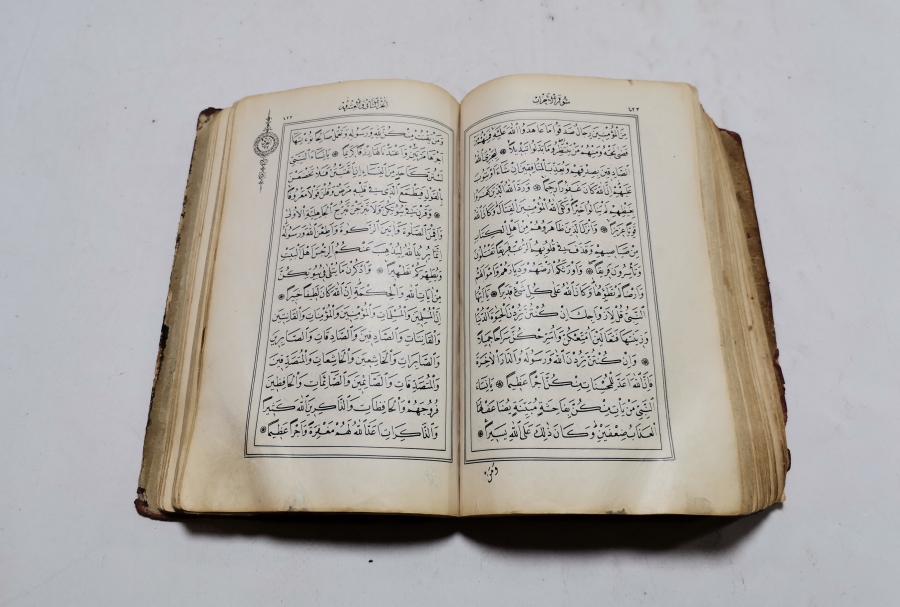 سُورَةُ الْاَحْزَابِ
مِنَ الْمُؤْمِنِينَ رِجَالٌ صَدَقُوا مَا عَاهَدُوا اللّٰهَ عَلَيْهِ فَمِنْهُمْ مَنْ
قَضٰى نَحْبَهُ وَمِنْهُمْ مَنْ يَنْتَظِرُ وَمَا بَدَّلُوا تَبْدِيلًا ۞ لِيَجْزِيَ اللّٰهُ
الصَّادِقِينَ بِصِدْقِهِمْ وَيُعَذِّبَ الْمُنَافِقِينَ اِنْ شَاءَ اَوْ يَتُوبَ
عَلَيْهِمْ اِنَّ اللّٰهَ كَانَ غَفُورًا رَحِيمًا ۞ وَرَدَّ اللّٰهُ الَّذِينَ كَفَرُوا
بِغَيْظِهِمْ لَمْ يَنَالُوا خَيْرًا وَكَفَى اللّٰهُ الْمُؤْمِنِينَ الْقِتَالَ وَكَانَ اللّٰهُ
قَوِيًّا عَزِيزًا ۞ وَاَنْزَلَ الَّذِينَ ظَاهَرُوهُمْ مِنْ اَهْلِ الْكِتَابِ
مِنْ صَيَاصِيهِمْ وَقَذَفَ فِي قُلُوبِهِمُ الرُّعْبَ فَرِيقًا تَقْتُلُونَ
وَتَأْسِرُونَ فَرِيقًا ۞ وَاَوْرَثَكُمْ اَرْضَهُمْ وَدِيَارَهُمْ وَاَمْوَالَهُمْ
وَاَرْضًا لَمْ تَطَؤُهَا وَكَانَ اللّٰهُ عَلٰى كُلِّ شَيْءٍ قَدِيرًا ۞ يَا اَيُّهَا
النَّبِيُّ قُلْ لِاَزْوَاجِكَ اِنْ كُنْتُنَّ تُرِدْنَ الْحَيٰوةَ الدُّنْيَا
وَزِينَتَهَا فَتَعَالَيْنَ اُمَتِّعْكُنَّ وَاُسَرِّحْكُنَّ سَرَاحًا جَمِيلًا
۞ وَاِنْ كُنْتُنَّ تُرِدْنَ اللّٰهَ وَرَسُولَهُ وَالدَّارَ الْاٰخِرَةَ
فَاِنَّ اللّٰهَ اَعَدَّ لِلْمُحْسِنَاتِ مِنْكُنَّ اَجْرًا عَظِيمًا ۞ يَا نِسَاءَ
النَّبِيِّ مَنْ يَأْتِ مِنْكُنَّ بِفَاحِشَةٍ مُبَيِّنَةٍ يُضَاعَفْ لَهَا
الْعَذَابُ ضِعْفَيْنِ وَكَانَ ذٰلِكَ عَلَى اللّٰهِ يَسِيرًا ۞
ومن
الجزء الثاني والعشرون
وَمَنْ يَقْنُتْ مِنْكُنَّ لِلّٰهِ وَرَسُولِهِ وَتَعْمَلْ صَالِحًا نُؤْتِهَا
اَجْرَهَا مَرَّتَيْنِ وَاَعْتَدْنَا لَهَا رِزْقًا كَرِيمًا ۞ يَا نِسَاءَ النَّبِيِّ
لَسْتُنَّ كَاَحَدٍ مِنَ النِّسَاءِ اِنِ اتَّقَيْتُنَّ فَلَا تَخْضَعْنَ
بِالْقَوْلِ فَيَطْمَعَ الَّذِي فِي قَلْبِهِ مَرَضٌ وَقُلْنَ قَوْلًا مَعْرُوفًا
۞ وَقَرْنَ فِي بُيُوتِكُنَّ وَلَا تَبَرَّجْنَ تَبَرُّجَ الْجَاهِلِيَّةِ الْاُولٰى
وَاَقِمْنَ الصَّلٰوةَ وَاٰتِينَ الزَّكٰوةَ وَاَطِعْنَ اللّٰهَ وَرَسُولَهُ
اِنَّمَا يُرِيدُ اللّٰهُ لِيُذْهِبَ عَنْكُمُ الرِّجْسَ اَهْلَ الْبَيْتِ
وَيُطَهِّرَكُمْ تَطْهِيرًا ۞ وَاذْكُرْنَ مَا يُتْلٰى فِي بُيُوتِكُنَّ
مِنْ اٰيَاتِ اللّٰهِ وَالْحِكْمَةِ اِنَّ اللّٰهَ كَانَ لَطِيفًا خَبِيرًا ۞
اِنَّ الْمُسْلِمِينَ وَالْمُسْلِمَاتِ وَالْمُؤْمِنِينَ وَالْمُؤْمِنَاتِ وَالْقَانِتِينَ
وَالْقَانِتَاتِ وَالصَّادِقِينَ وَالصَّادِقَاتِ وَالصَّابِرِينَ
وَالصَّابِرَاتِ وَالْخَاشِعِينَ وَالْخَاشِعَاتِ وَالْمُتَصَدِّقِينَ
وَالْمُتَصَدِّقَاتِ وَالصَّائِمِينَ وَالصَّائِمَاتِ وَالْحَافِظِينَ
فُرُوجَهُمْ وَالْحَافِظَاتِ وَالذَّاكِرِينَ اللّٰهَ كَثِيرًا
وَالذَّاكِرَاتِ اَعَدَّ اللّٰهُ لَهُمْ مَغْفِرَةً وَاَجْرًا عَظِيمًا ۞